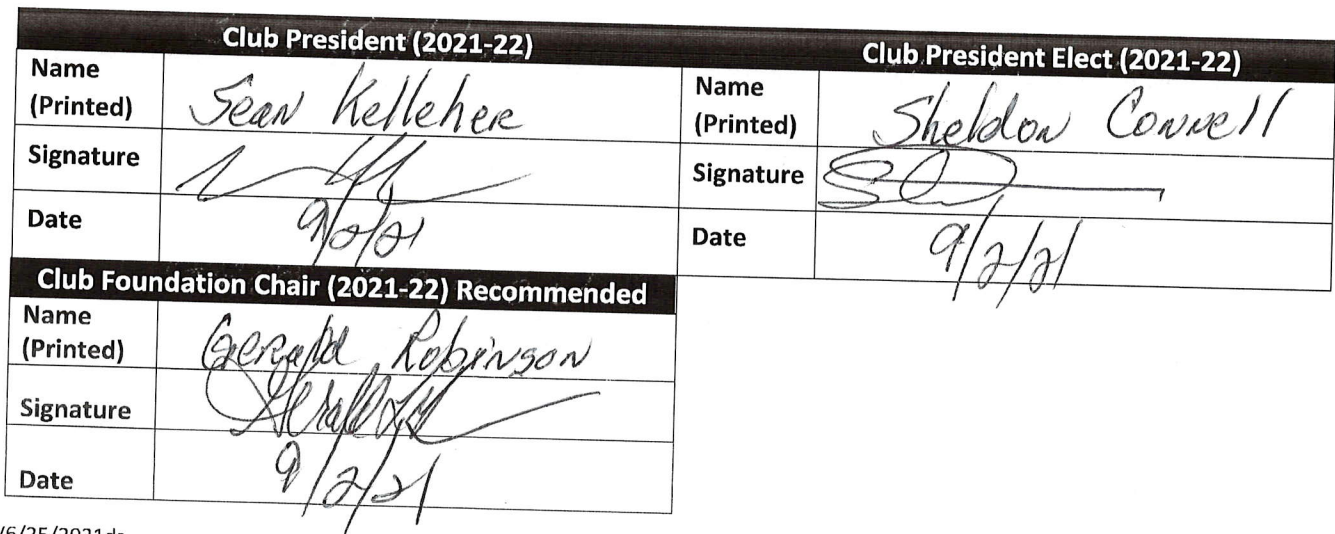 Club President (2021-22)
Name
(Printed) Sean Kelleher
Signature
Date 9/2/21
Club President Elect (2021-22)
Name
(Printed) Sheldon Connell
Signature
Date 9/2/21
Club Foundation Chair (2021-22) Recommended
Name
(Printed) Gerald Robinson
Signature
Date 9/2/21